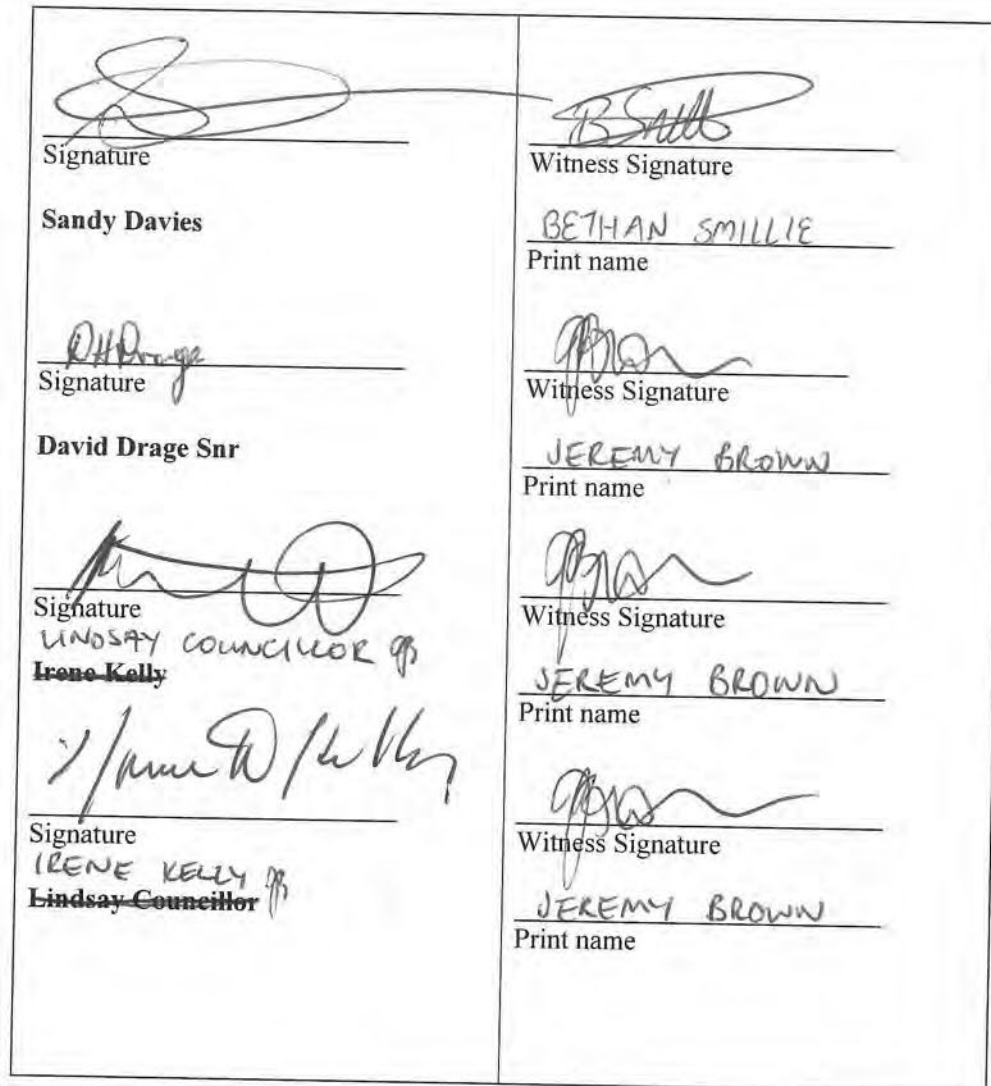 Signature
Sandy Davies
Signature
David Drage Snr
Signature
LINDSAY COUNCILLOR
Irene Kelly
Signature
IRENE KELLY
Lindsay Councillor
Witness Signature
BETHAN SMILLIE
Print name
Witness Signature
JEREMY BROWN
Print name
Witness Signature
JEREMY BROWN
Print name
Witness Signature
JEREMY BROWN
Print name